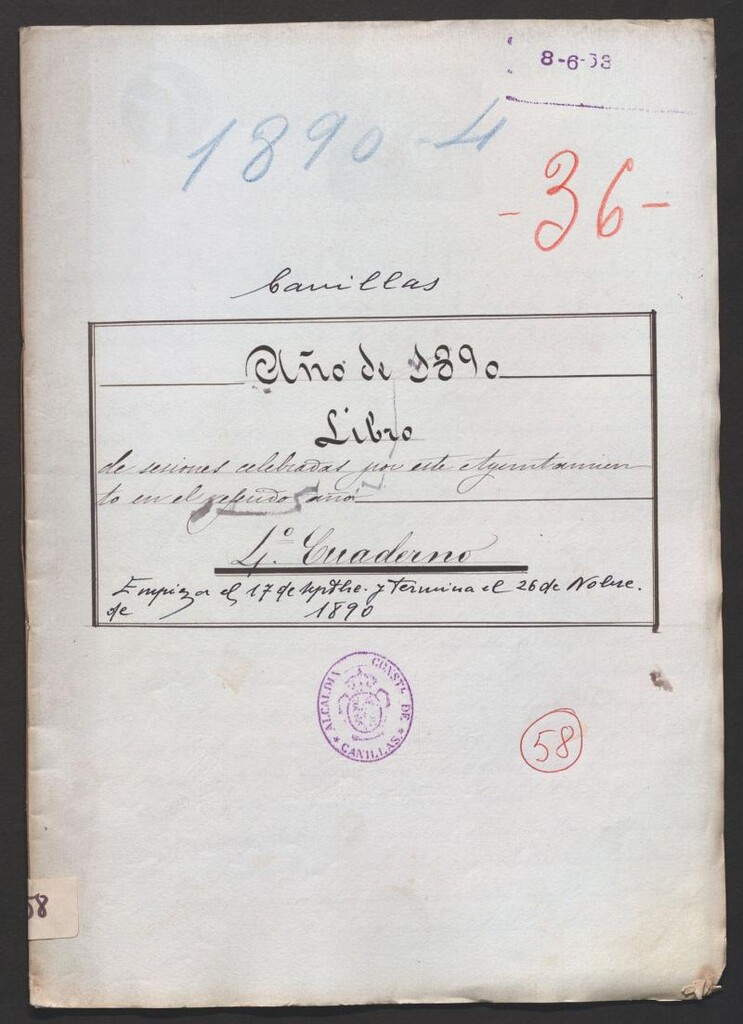 1890-4
-36-
Canillas
Año de 1890
Libro
de sesiones celebradas por este Ayuntamien
to en el referido año
4.º Cuaderno
Empieza el 17 de septbe. y termina el 26 de Nobre.
de 1890
ALCALDIA CONSTL. DE
* CANILLAS. *
58
58